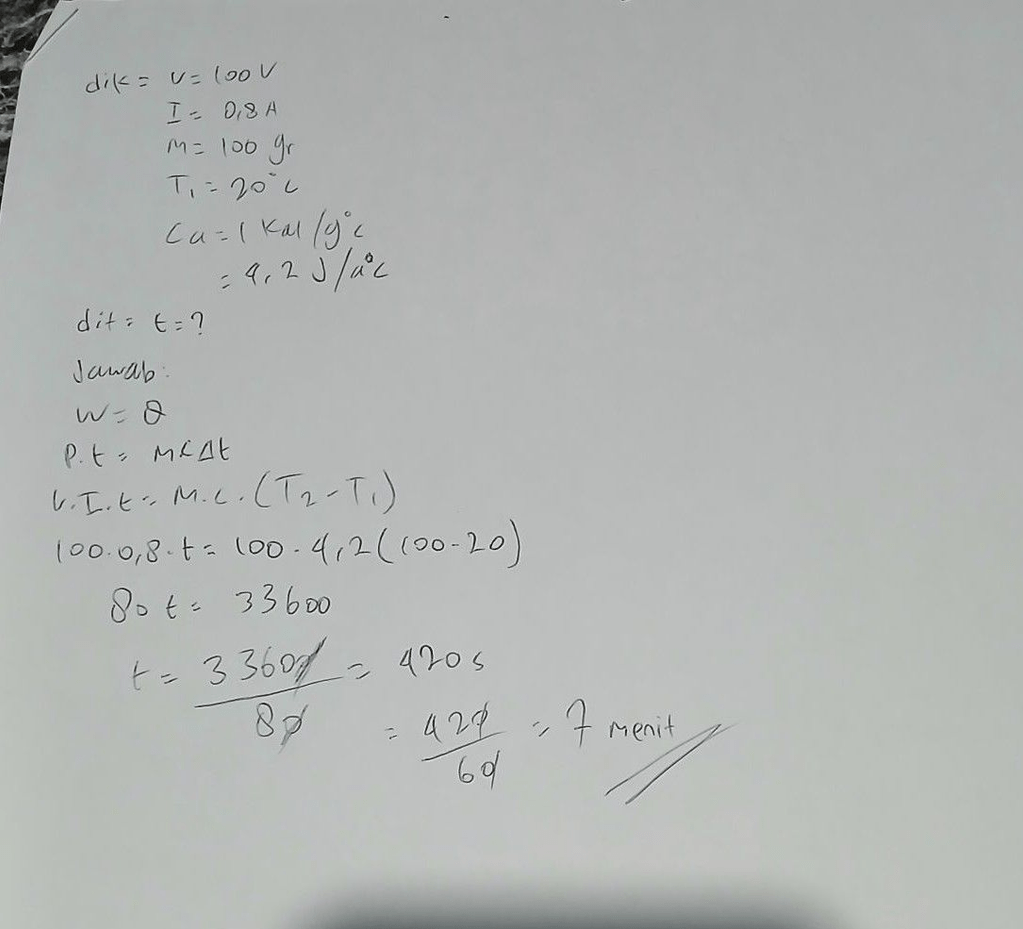 dik = V = 100 V
I = 0,8 A
M = 100 gr
T₁ = 20°C
Ca = 1 Kal/g°C
= 4,2 J/g°C
dit = t = ?
Jawab:
W = Q
P.t = M C Δt
V.I.t = M.C.(T₂-T₁)
100.0,8.t = 100.4,2(100-20)
80 t = 33600
t = 33600/80 = 420 s
= 420/60 = 7 menit